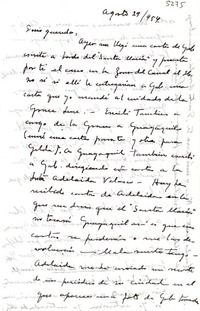 5275
Agosto 29/954
Doris querida:
Ayer me llegó una carta de Gab.
escrita a bordo del "Santa María" y puesta
por él al correo en la Zona del Canal el
No sé si allí le entregarían a Gab. una
carta que yo mandé al cuidado de la
Grace Line. Escribí también a
cargo de la Grace a Guayaquil
(envié una carta para él y otra para
Gilda). A Guayaquil también escribí
a Gab. dirigiendo mi carta a la
Adelaida Velasco. Hoy he
recibido carta de Adelaida en la
que me dice que el "Santa María"
no tocará Guayaquil así es que mis
cartas se perderán o me las
devolverán. Mala suerte tengo.
Adelaida me ha enviado un recorte
de un periódico de su ciudad en el
que aparece una foto de Gab. tomada